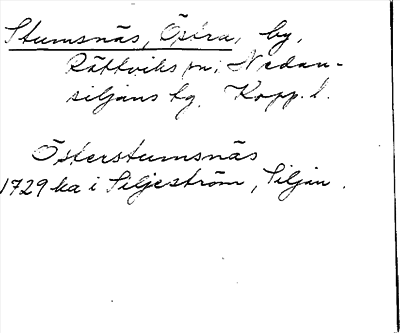 Stumsnäs, Östra, by,
Rättviks sn; Nedan-
siljans tg. Kopp. l.
Österstumsnäs
1729 ka i Siljeström, Siljan.